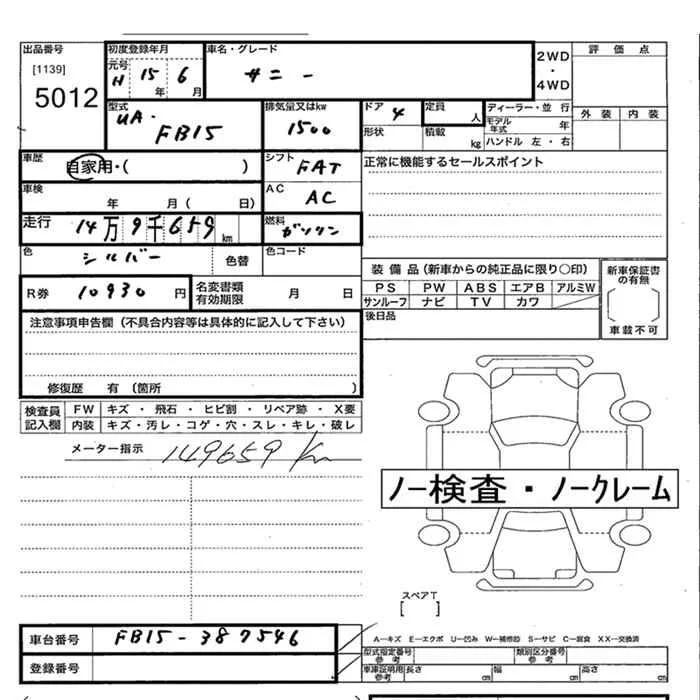 出品番号 初度登録年月 車名・グレード 評価点
[1139] 元号 H 15年 6月 サニー 2WD・4WD
5012 外装 内装
型式 排気量又はkw ドア 4 定員 人 ディーラー・並行
UA-FB15 1500 形状 積載 kg モデル年式 年
ハンドル 左・右
車歴 自家用・( ) シフト FAT 正常に機能するセールスポイント
車検 年 月( 日) AC AC
走行 14万9千659km 燃料 ガソリン
色 シルバー 色替 色コード
装備品(新車からの純正品に限り○印) 新車保証書の有無
R券 10930円 名変書類有効期限 月 日 PS PW ABS エアB アルミW
サンルーフ ナビ TV カワ
車載不可
注意事項申告欄(不具合内容等は具体的に記入して下さい) 後日品
修復歴 有(箇所 )
検査員記入欄 FW キズ・飛石・ヒビ割・リペア跡・X要
内装 キズ・汚レ・コゲ・穴・スレ・キレ・破レ
メーター指示 149659Km
ノー検査・ノークレーム
スペアT
[ ]
車台番号 FB15-387546
A―キズ E―エクボ U―凹み W―補修跡 S―サビ C―腐食 XX―交換済
登録番号 型式指定番号 参考 類別区分番号 参考
車庫証明用 参考 長さ cm 幅 cm 高さ cm